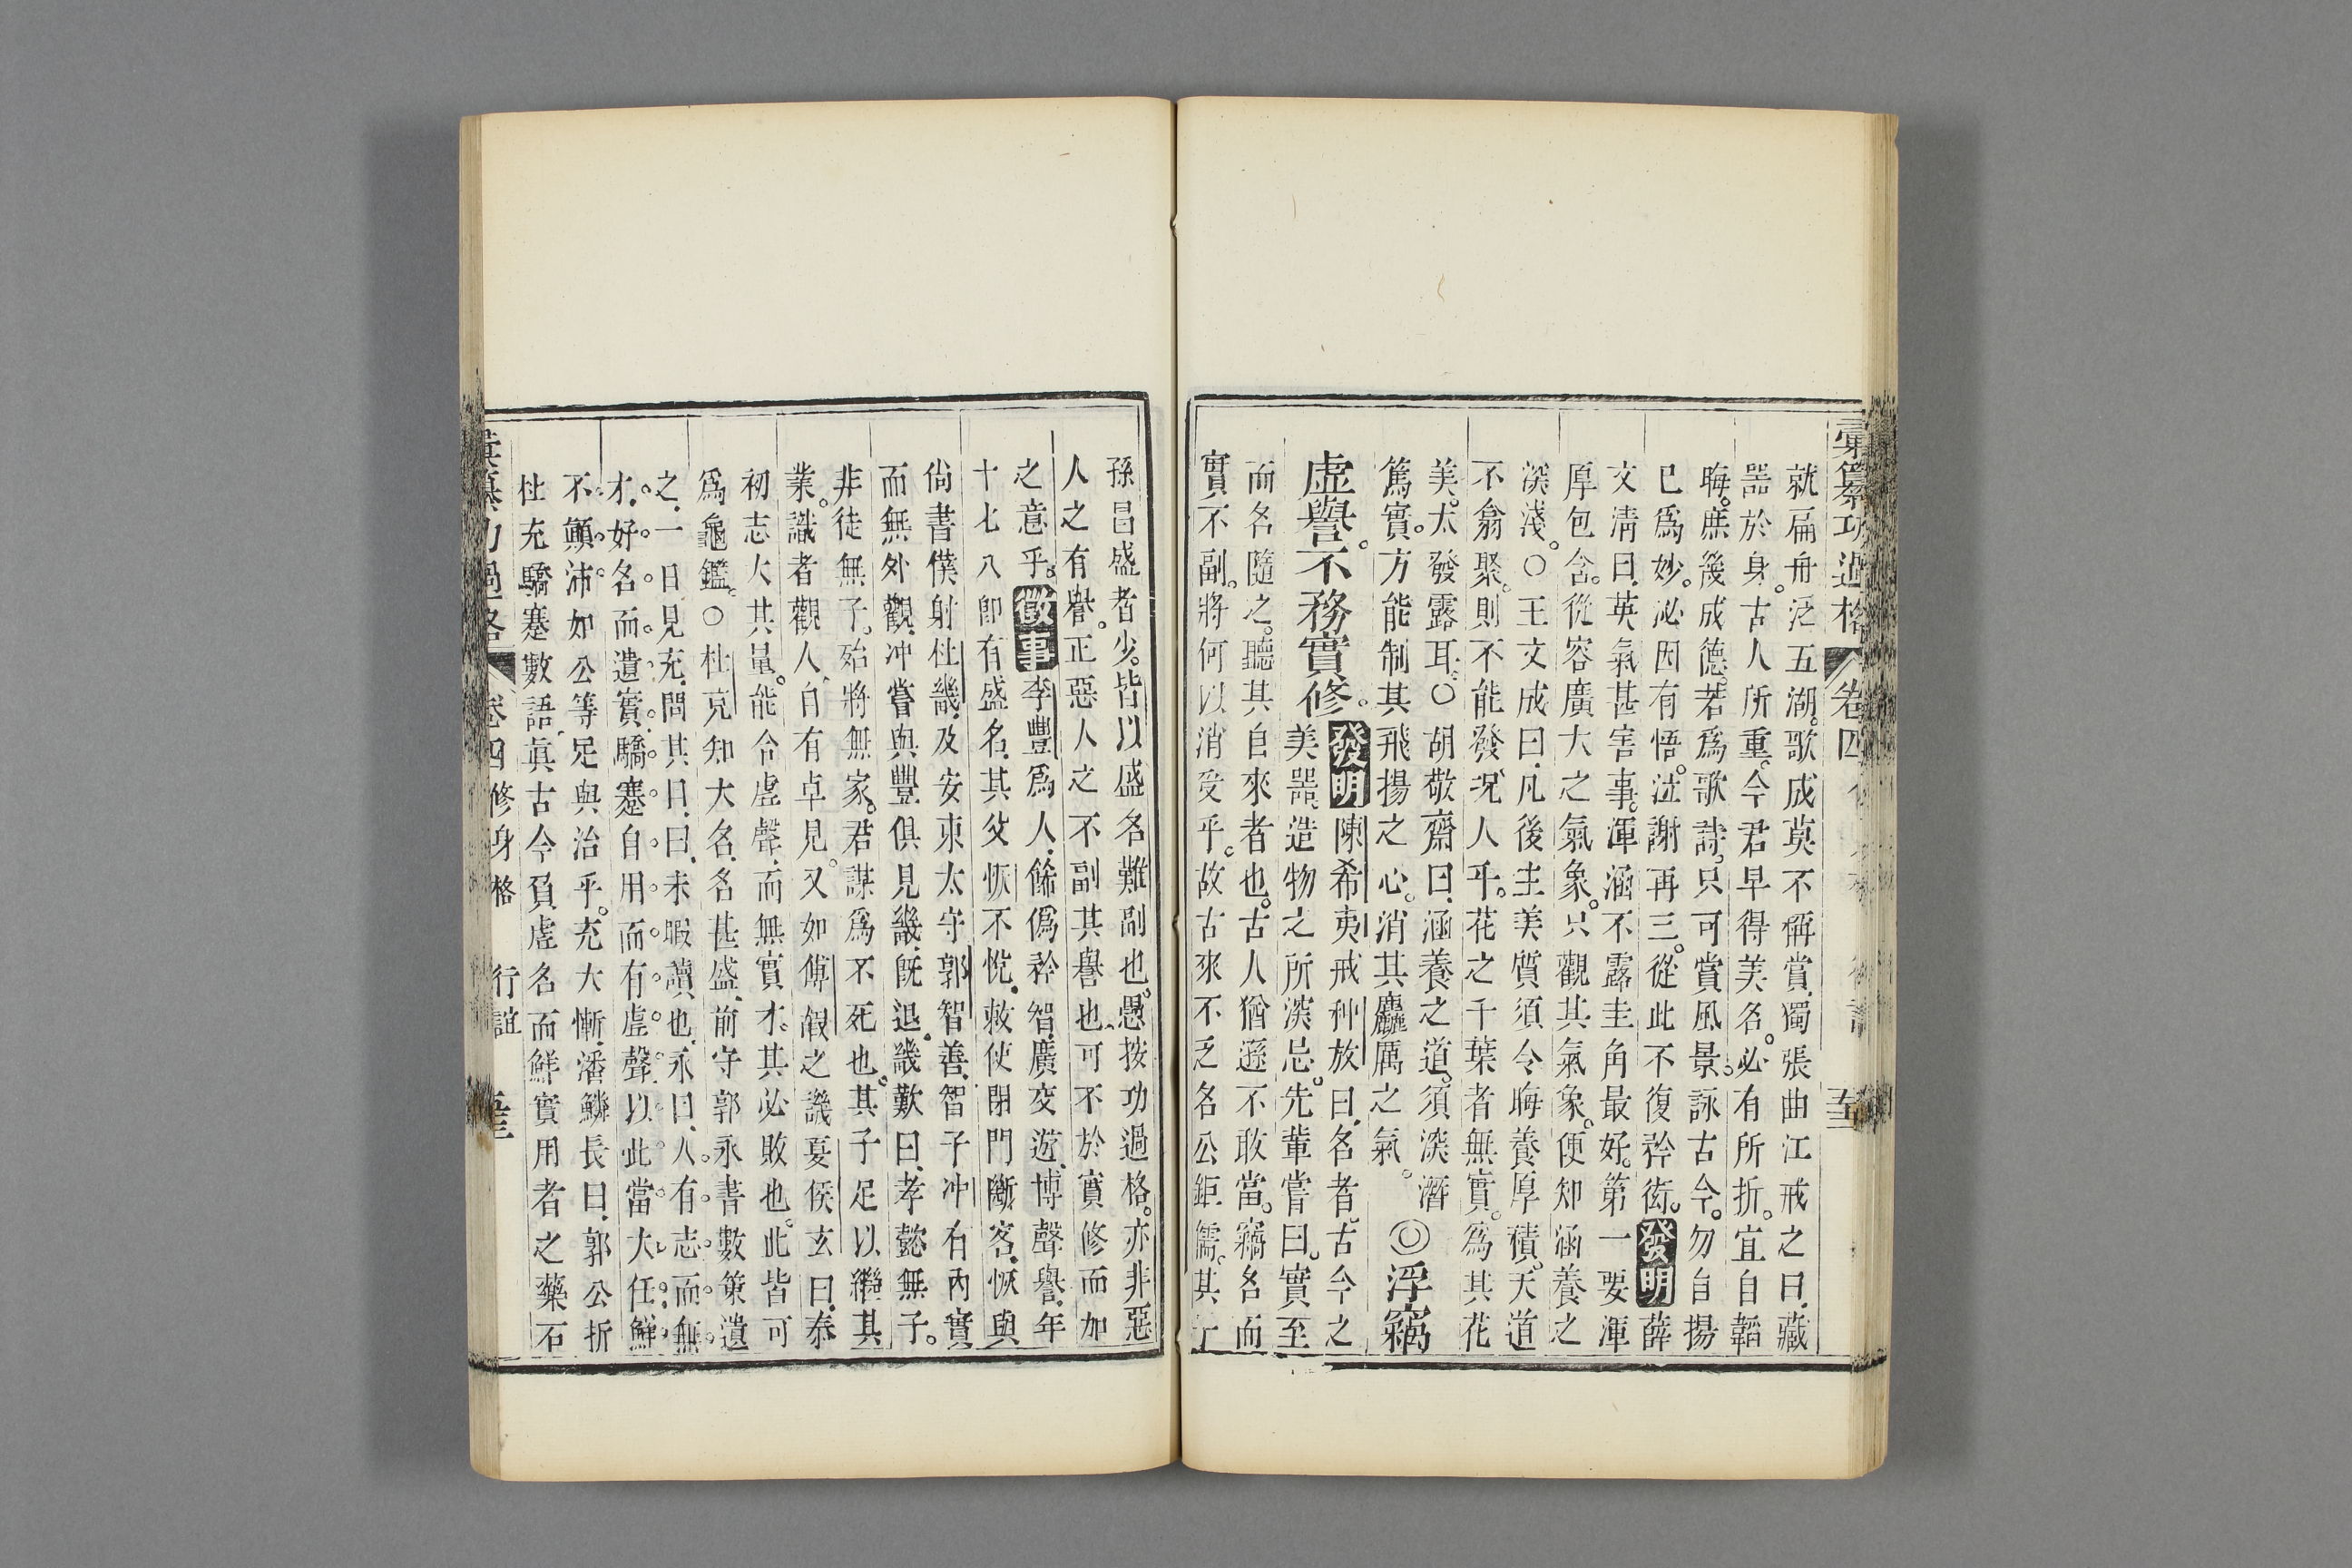 彙纂功過格 卷四
就扁舟泛五湖。歌成莫不稱賞。獨張曲江戒之曰。藏
器於身。古人所重。今君早得美名。必有所折。宜自韜
晦。庶幾成德。若爲歌詩。只可賞風景。詠古今。勿自揚
已爲妙。泌因有悟。泣謝再三。從此不復矜衒。發明薛
文淸曰。英氣甚害事。渾涵不露圭角最好。第一要渾
厚包含。從容廣大之氣象。只觀其氣象。便知涵養之
深淺。○王文成曰。凡後生美質須令晦養厚積。天道
不翕聚。則不能發。況人乎。花之千葉者無實。爲其花
美。太發露耳。○胡敬齋曰。涵養之道。須深潛
篤實。方能制其飛揚之心。消其麤厲之氣。◎浮竊
虛譽。不務實修。發明陳希夷戒种放曰。名者。古今之
美器。造物之所深忌。先輩嘗曰。實至
而名隨之。聽其自來者也。古人猶遜不敢當。竊名而
實不副。將何以消受乎。故古來不乏名公鉅儒。其子
孫昌盛者少。皆以盛名難副也。愚按功過格。亦非惡
人之有譽。正惡人之不副其譽也。可不於實修而加
之意乎。徵事李豐爲人。餙僞矜智。廣交遊。博聲譽。年
十七八卽有盛名。其父恢不悅。敕使閉門斷客。恢與
尙書僕射杜畿。及安東太守郭智善。智子冲有內實
而無外觀。冲嘗與豐俱見畿。旣退。畿歎曰。孝懿無子。
非徒無子。殆將無家。君謀爲不死也。其子足以繼其
業。識者觀人。自有卓見。又如傅嘏之譏夏侯玄曰。泰
初志大其量。能合虛聲。而無實才。其必敗也。此皆可
爲龜鑑。○杜克知大名。名甚盛。前守郭永書數策遺
之。一日見充。問其目。曰。未暇讀也。永曰。人有志而無
才。好名而遺實。驕蹇自用而有虛聲。以此當大任。鮮
不顚沛。如公等足與治乎。充大慚。潘鱗長曰。郭公折
杜充驕蹇數語。眞古今負虛名而鮮實用者之藥石
卷四 修身格 行誼